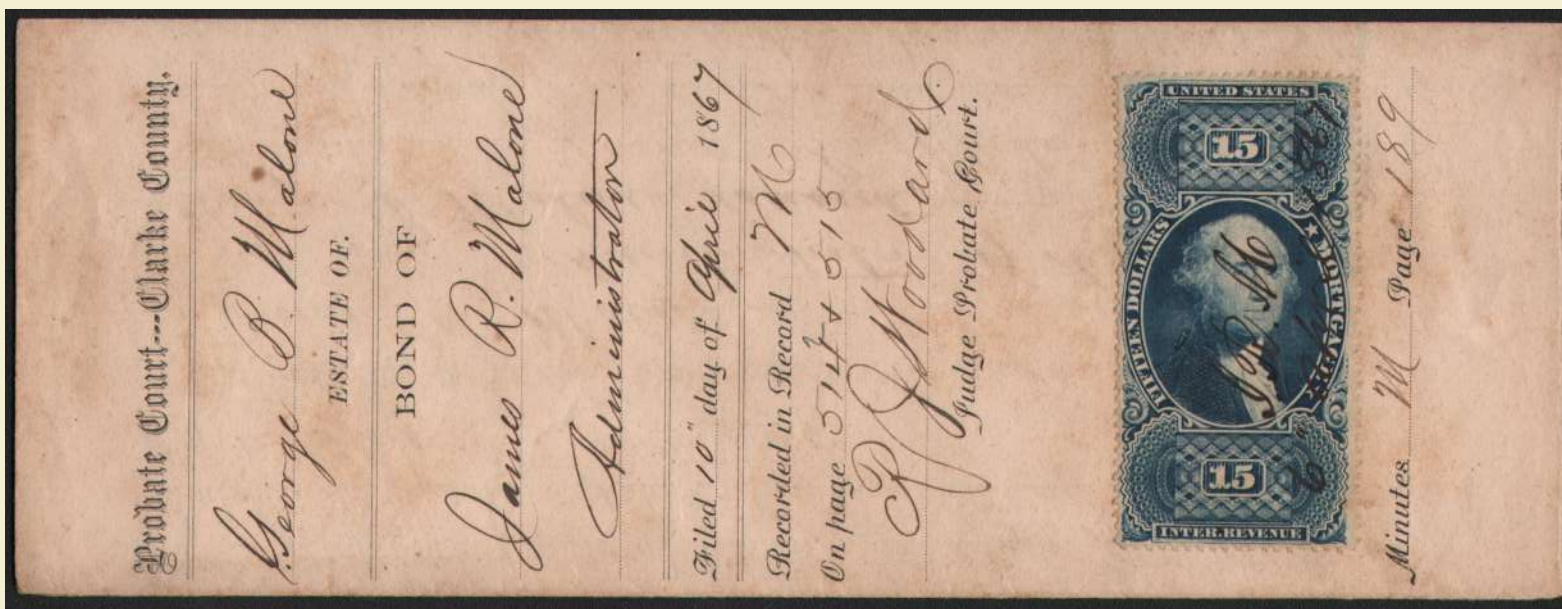 Probate Court---Clarke County.
George B. Malone
ESTATE OF.
BOND OF
James R. Malone
Administrator
Filed 10" day of April 1867
Recorded in Record M
On page 514 + 515
Woodard
Judge Probate Court.
UNITED STATES
15
FIFTEEN DOLLARS ★ MORTGAGE
J. R. M.
1867
15
INTER. REVENUE
Minutes M Page 189